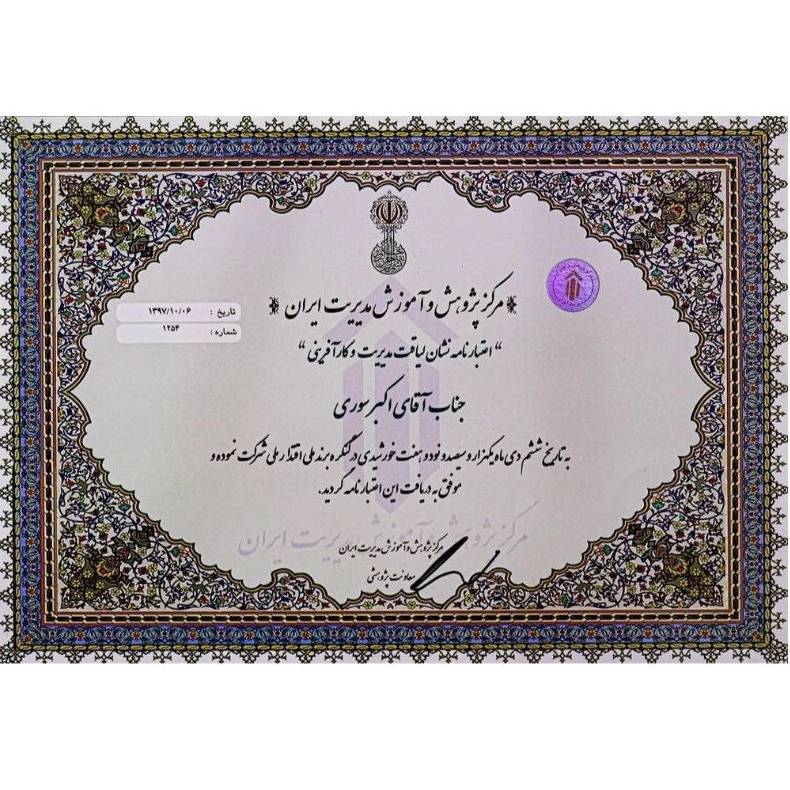 مرکز پژوهش و آموزش مدیریت ایران
تاریخ : ۱۳۹۷/۱۰/۰۶
شماره : ۱۲۵۴
"اعتبارنامه نشان لیاقت مدیریت و کارآفرینی"
جناب آقای اکبر سوری
به تاریخ ششم دی ماه یکهزار و سیصد و نود و هفت خورشیدی در کنگره برند ملی اقتدار ملی شرکت نموده و
موفق به دریافت این اعتبارنامه گردید.
مرکز پژوهش و آموزش مدیریت ایران
مرکز پژوهش و آموزش مدیریت ایران
معاونت پژوهشی